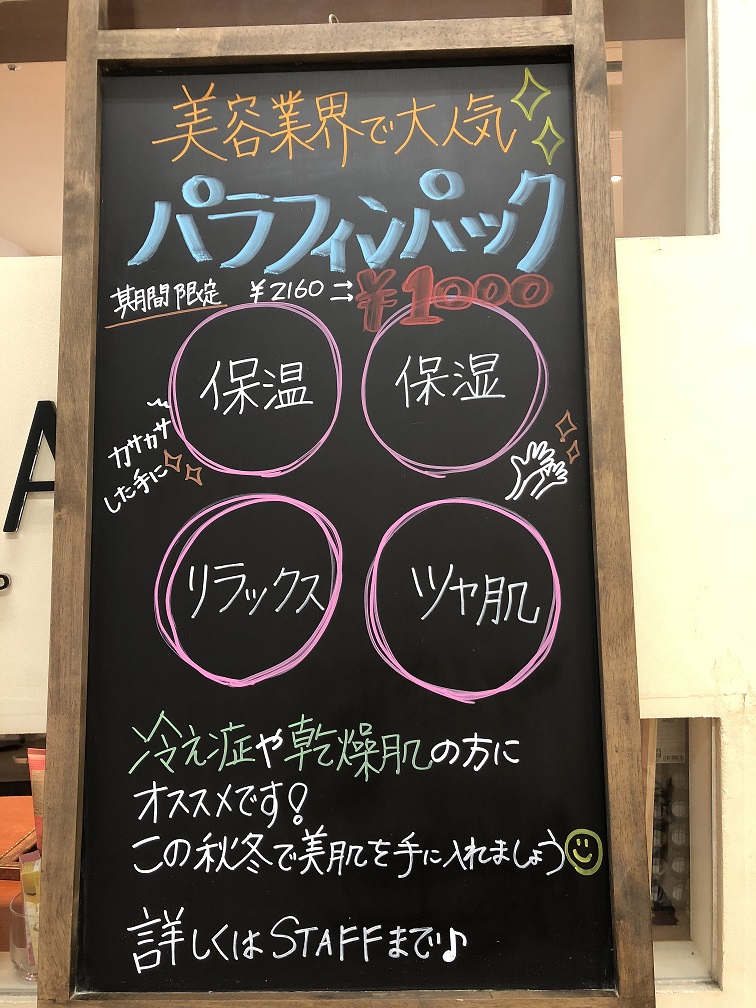 美容業界で大人気
パラフィンパック
期間限定 ¥2160⇒¥1000
保温 保湿
ガサガサ
した手に
リラックス ツヤ肌
冷え症や乾燥肌の方に
オススメです!
この秋冬で美肌を手に入れましょう
詳しくはSTAFFまで♪
A